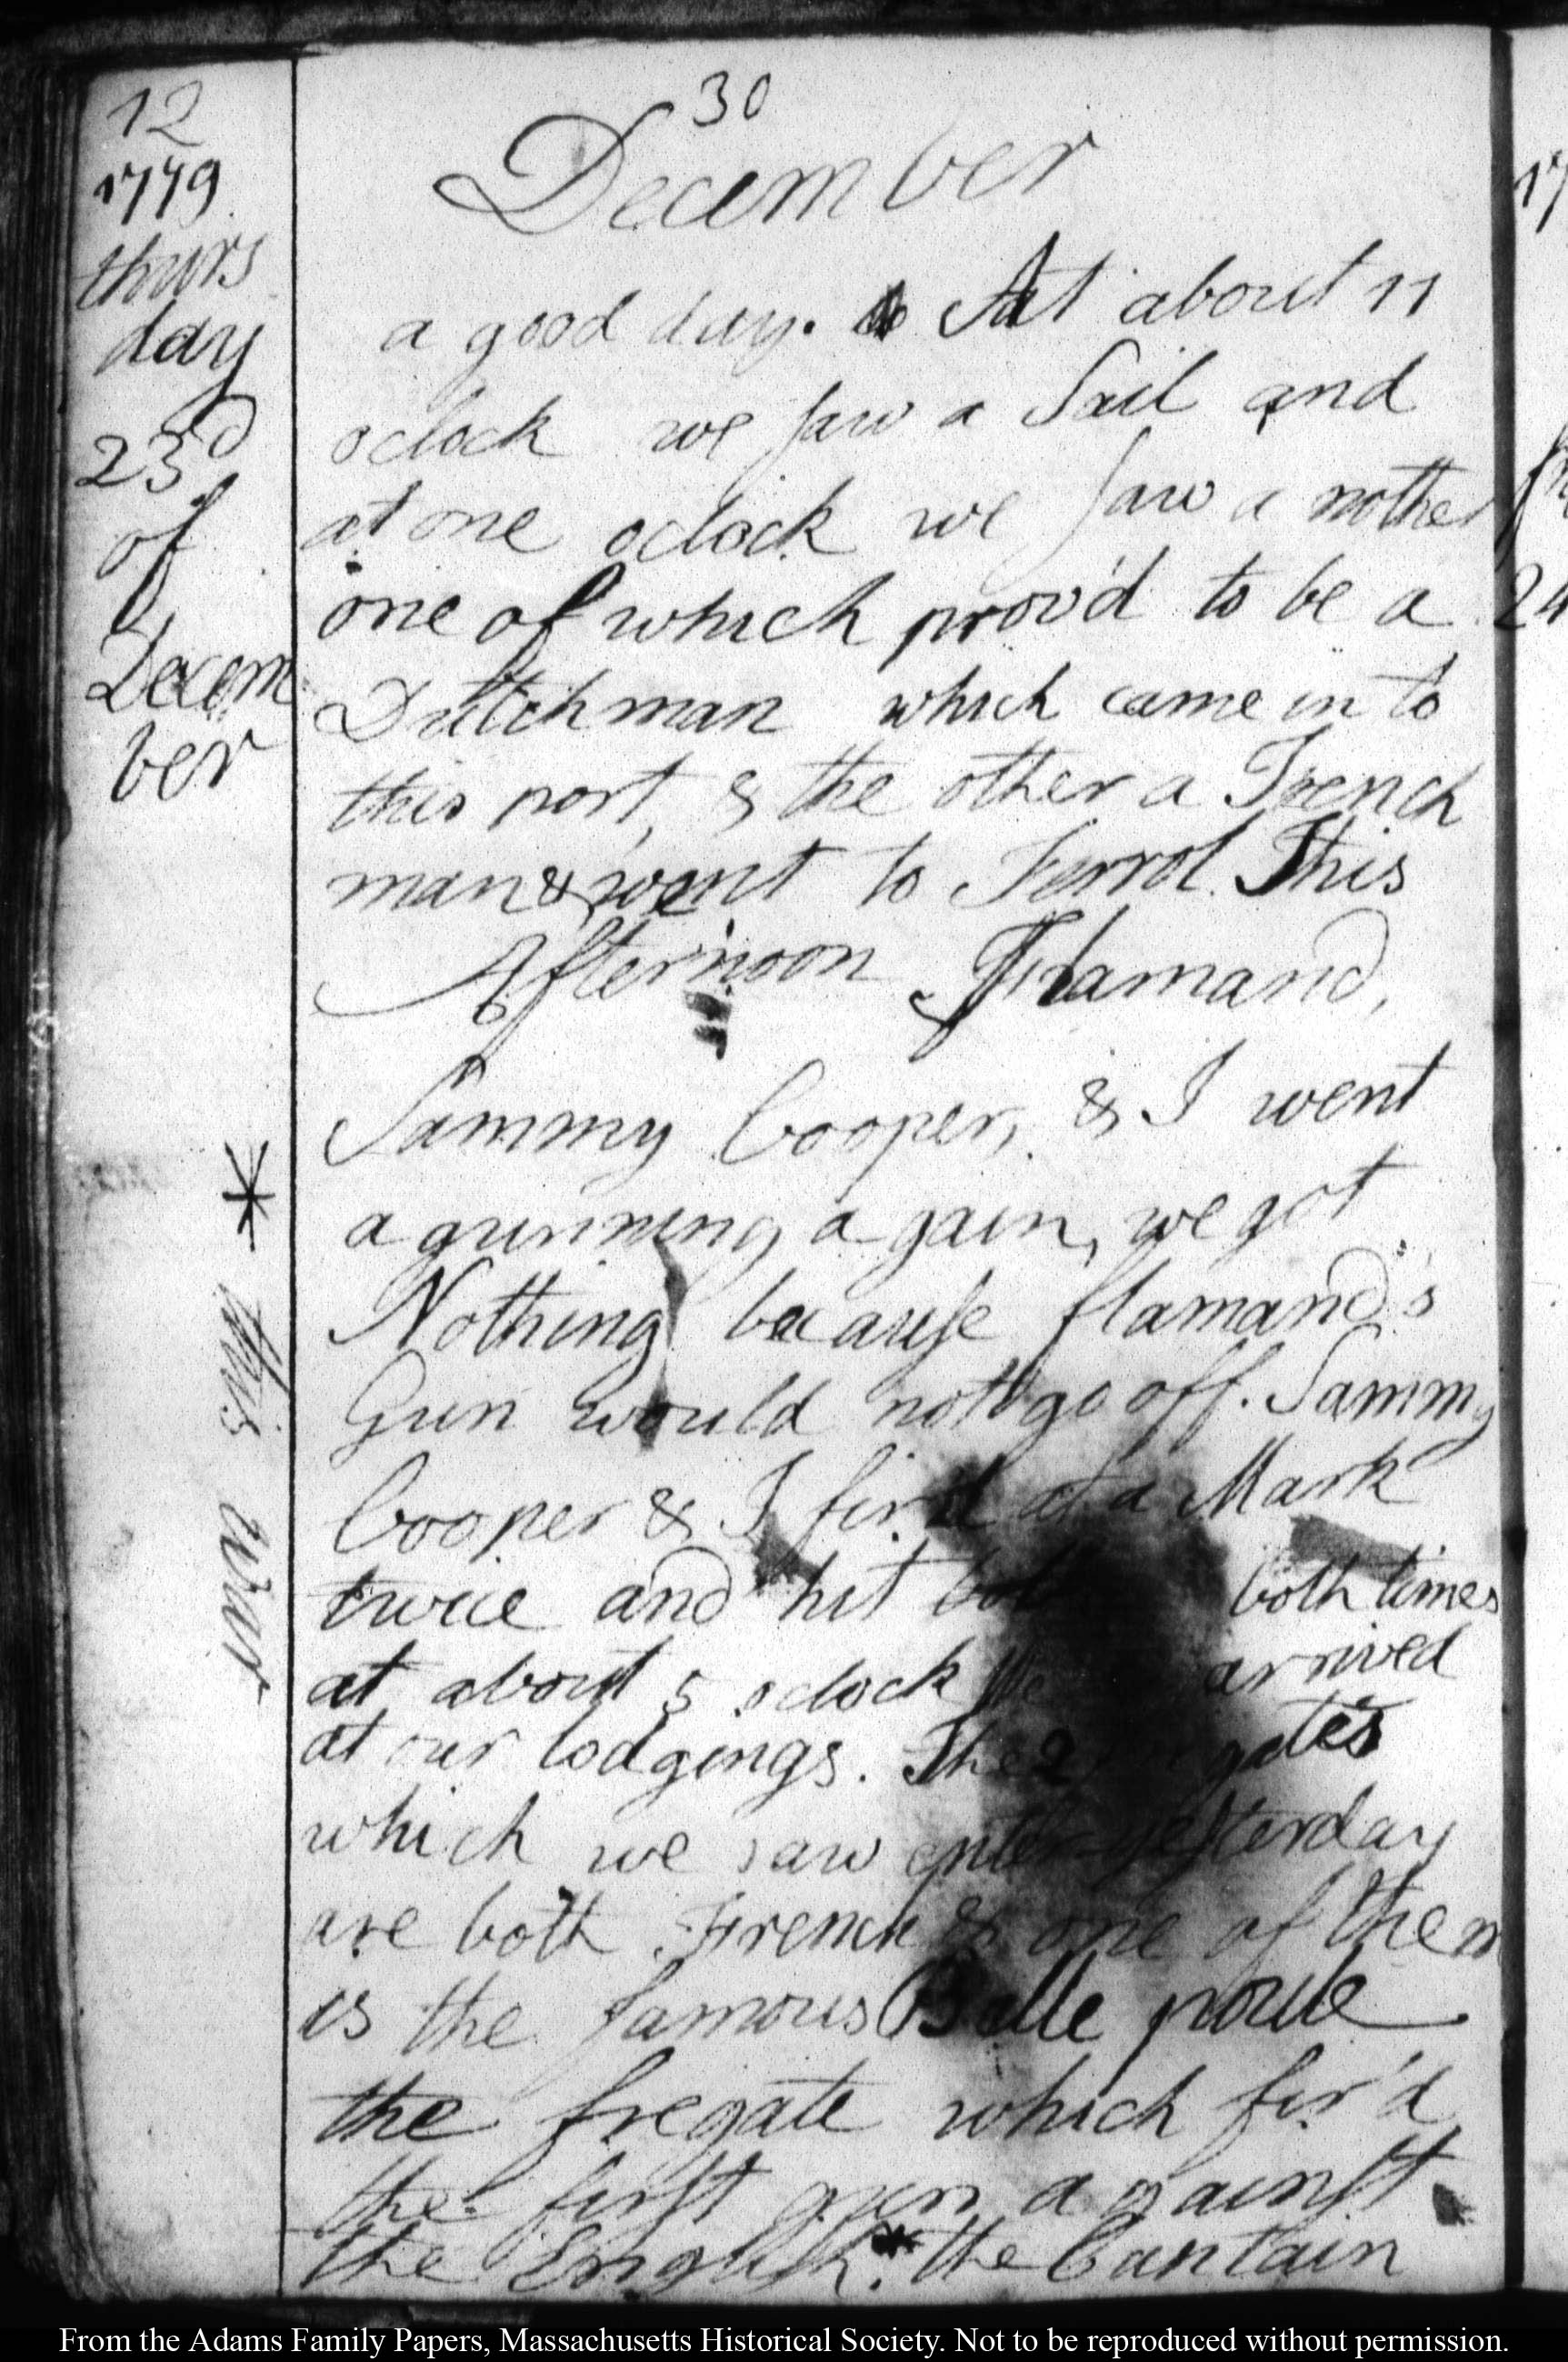 12
1779
thurs
day
23d
of
Decem
ber
* this war
30
December
a good day. At about 11
oclock we saw a Sail and
at one oclock we saw a nother
one of which proov'd to be a
Dutchman which came in to
this port, & the other a French
man & went to Ferrol. This
Afternoon Flamand,
Sammy Cooper, & I went
a gunning a gain, we got
Nothing because flamand's
Gun would not go off. Sammy
Cooper & I fir'd at a Mark
twice and hit both times
at about 5 oclock We arrived
at our lodgings. The 2
which we saw enter yesterday
are both French & one of them
is the famous Belle poule
the fregate which fir'd
the first gun against
the English.* the Captain
17
24
From the Adams Family Papers, Massachusetts Historical Society. Not to be reproduced without permission.